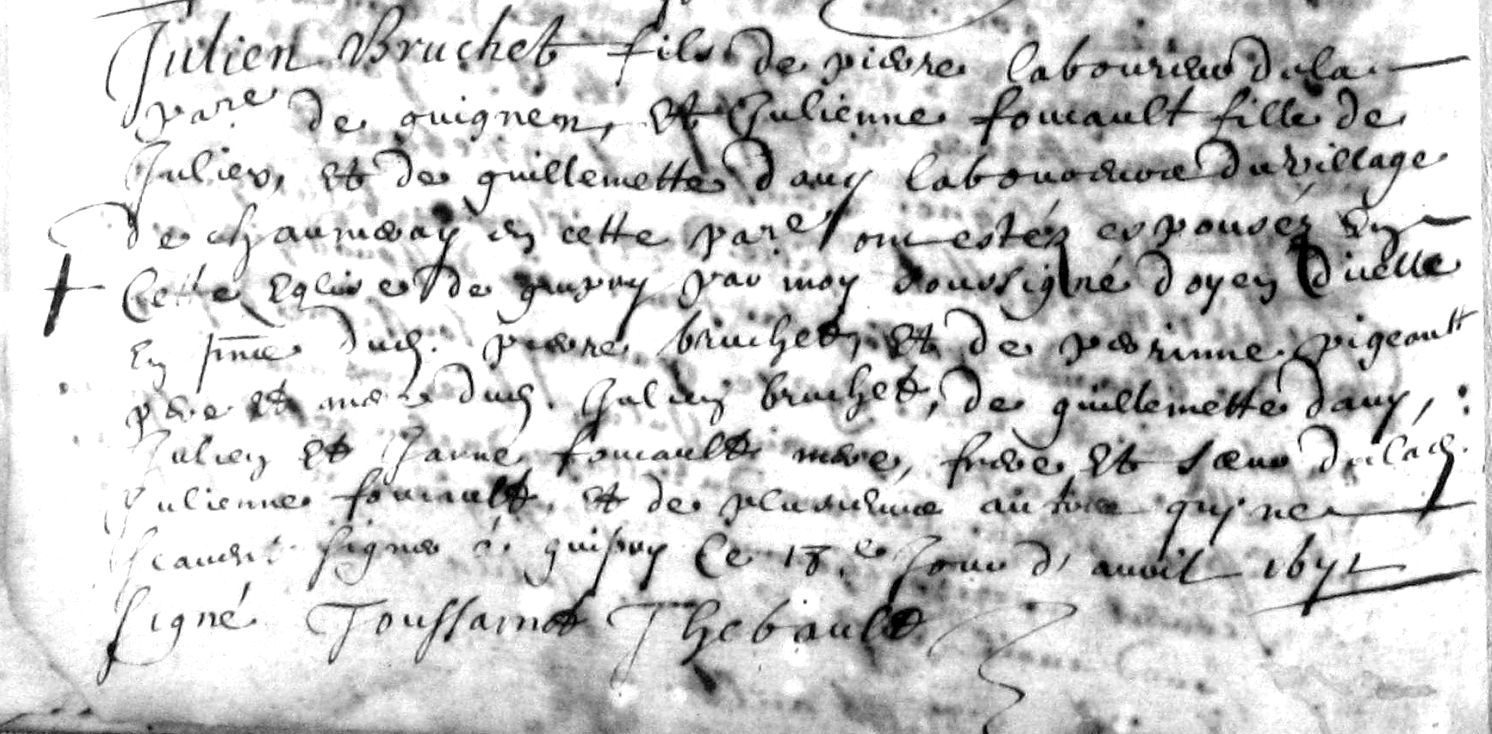 Julien Bruchet fils de pierre laboureur dela
par.re de guignen, et Julienne foucault fille de
Julien, et de guillemette dauy laboureurs du village
de chaumeray en cette par.e ont estés espousés en
Cette Eglise de guipry par moy soussigné doyen d'icelle
En pnce dud. pierre bruchet, et de perinne pigeault
pere et mere dud. Julien bruchet, de guillemette dauy,
Julien et Janne foucault mere, frere et sœur de lad.
Julienne foucault, et de plusieurs autres quy ne
scauent signer à guipry Le 18.e Jour d'auril 1671
Signé Toussainct Thebault